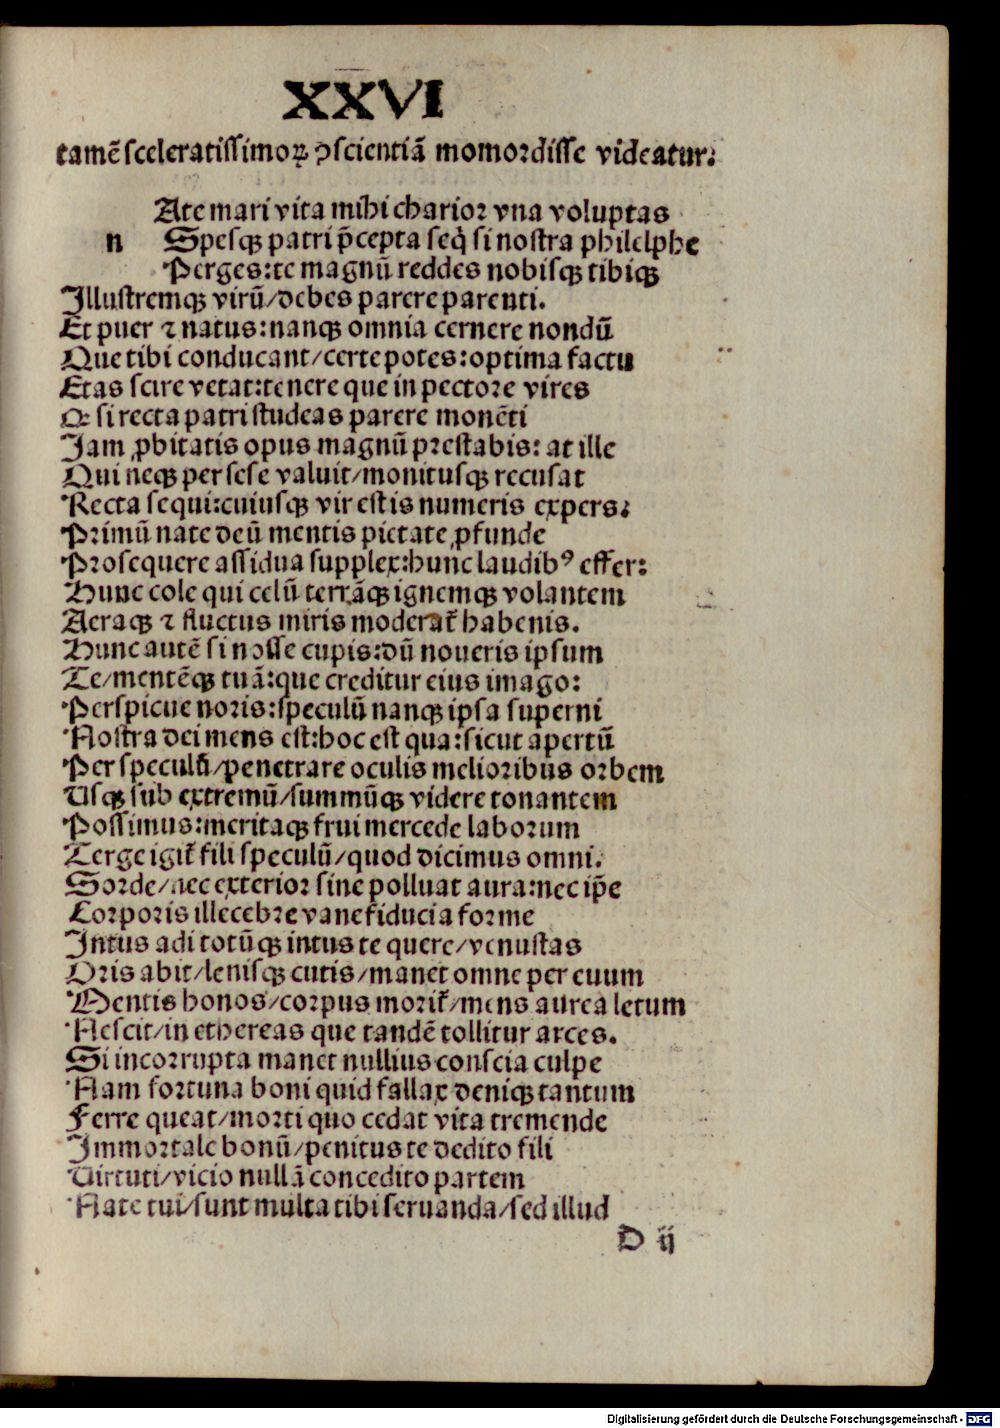 XXVI
tamē sceleratissimoꝝ ↄscientiā momordisse videatur:
Ate mari vita mihi charior vna voluptas
n Spesqꝫ patri p̄cepta seq̇ si nostra philelphe
Perges: te magnū reddes nobisqꝫ tibiqꝫ
Illustremqꝫ virū/ debes parere parenti.
Et puer ⁊ natus: nanqꝫ omnia cernere nondū
Que tibi conducant/ certe potes: optima factu
Etas scire vetat: tenere que in pectore vires
Qꝛ si recta patri studeas parere monēti
Jam ꝓbitatis opus magnū prestabis: at ille
Qui neqꝫ per sese valuit/ monitusqꝫ recusat
Recta sequi: cuiusqꝫ vir est is numeris expers:
Primū nate deū mentis pietate ꝓfunde
Prosequere assidua supplex: hunc laudibꝰ effer:
Hunc cole qui celū terrāqꝫ ignemqꝫ volantem
Aeraqꝫ ⁊ fluctus miris moderat̄ habenis.
Hunc autē si nosse cupis: dū noueris ipsum
Te/ mentēqꝫ tuā: que creditur eius imago:
Perspicue noris: speculū nanqꝫ ipsa superni
Nostra dei mens est: hoc est qua: sicut apertū
Per speculū/ penetrare oculis melioribus orbem
Usqꝫ sub extremū/ summūqꝫ videre tonantem
Possimus: meritaqꝫ frui mercede laborum
Terge igit̄ fili speculū/ quod dicimus omni.
Sorde/ nec exterior sine polluat aura: nec ip̄e
Corporis illecebre vane fiducia forme
Intus adi totūqꝫ intus te quere/ venustas
Oris abit/ lenisqꝫ cutis/ manet omne per euum
Mentis honos/ corpus morit̄/ mens aurea letum
Nescit/ in ethereas que tandē tollitur arces.
Si incorrupta manet nullius conscia culpe
Nam fortuna boni quid fallax deniqꝫ tantum
Ferre queat/ morti quo cedat vita tremende
Immortale bonū/ penitus te dedito fili
Uirtuti/ vicio nullā concedito partem
Nate tui/ sunt multa tibi seruanda/ sed illud
D ij
Digitalisierung gefördert durch die Deutsche Forschungsgemeinschaft - DFG